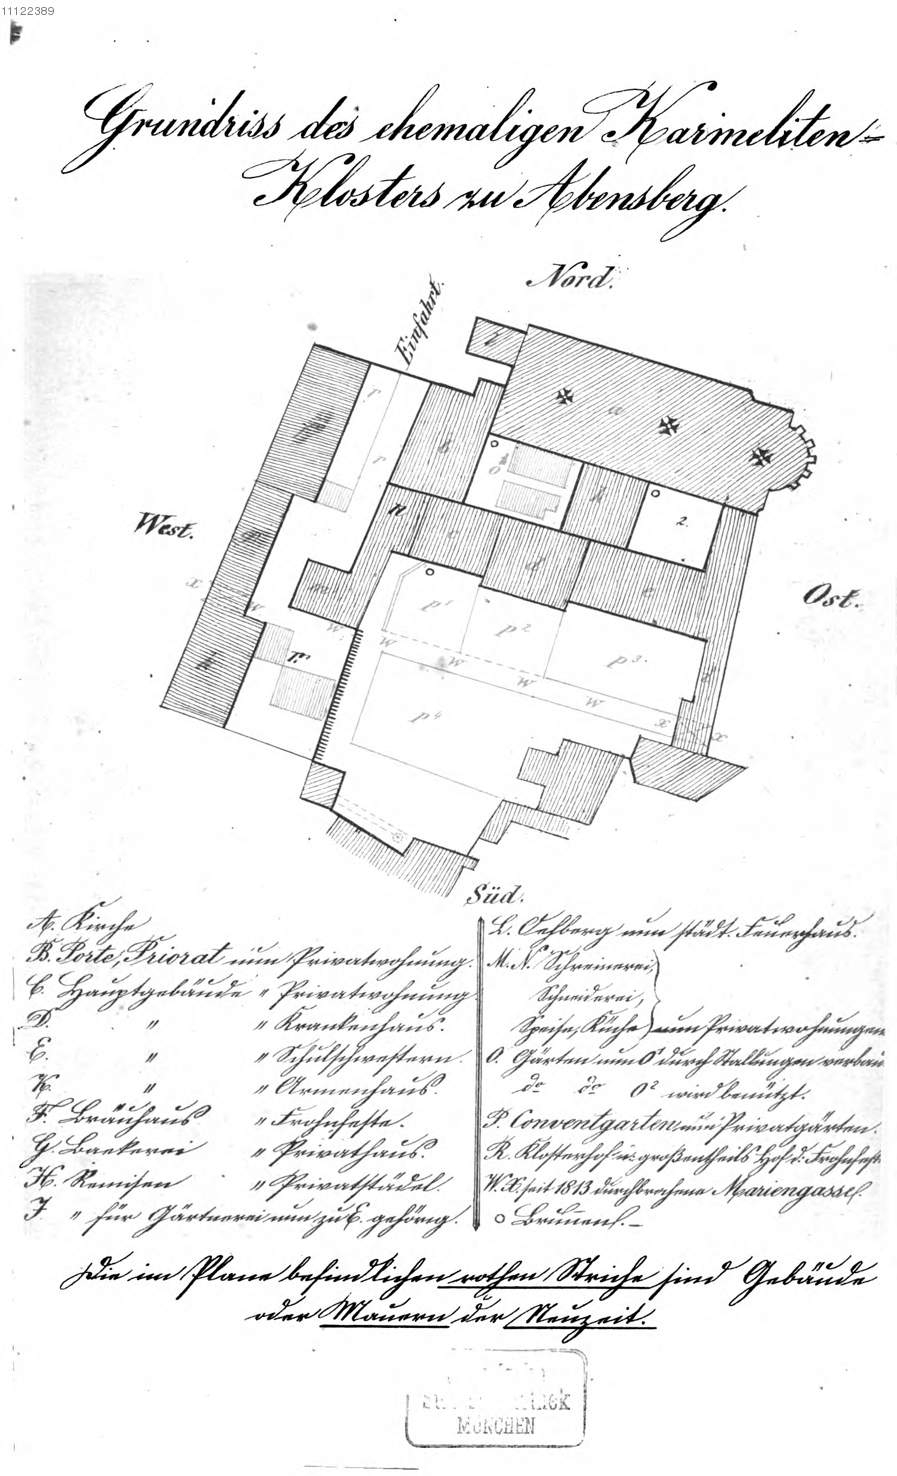 11122389
Grundriss des ehemaligen Karmeliten=
Klosters zu Abensberg.
Nord.
Einfahrt.
l
r
a
b
r
o
k
2.
n
West.
c
d
e
m
Ost.
x
w
p¹
w.
p²
w
w
p³.
h
r.
w
w
i
p⁴
x
x
Süd.
A. Kirche
B. Porte, Priorat nun Privatwohnung.
C. Hauptgebäude " Privatwohnung
D. " " Krankenhaus.
E. " " Schulschwestern.
K. " " Armenhaus.
F. Bräuhaus " Frohnfeste.
G. Baekerei " Privathaus.
H. Remisen " Privatstädel.
J. " für Gärtnerei nun zu E. gehörig.
L. Oehlberg nun städt. Feuerhaus.
M. N. Schreinerei,
Schneiderei,
Speise, Küche nun Privatwohnungen
O. Gärten nun O¹ durch Stallungen verbau
do do O² wird benützt.
P. Conventgarten nun Privatgärten.
R. Klosterhof u. großentheils Hof d. Frohnfest
W. X. seit 1813 durchbrochene Mariengasse.
o Brunnen. –
Die im Plane befindlichen rothen Striche sind Gebäude
oder Mauern der Neuzeit.
MÜNCHEN